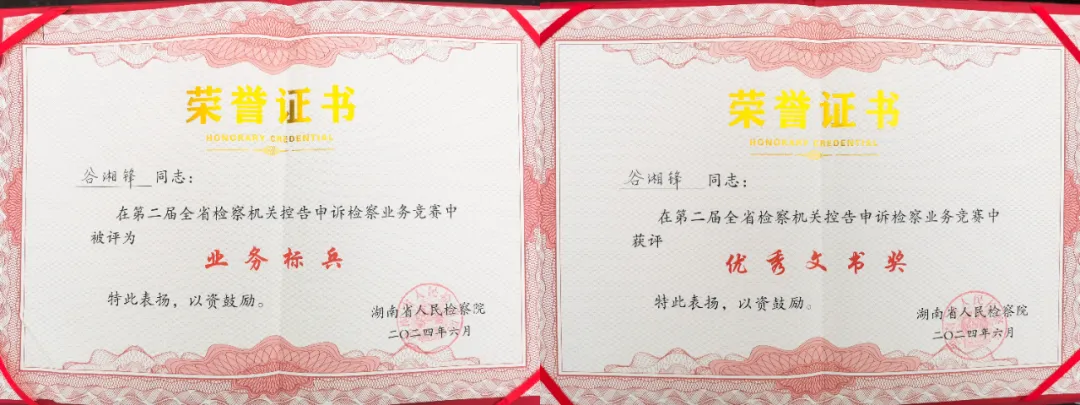 荣誉证书
HONORARY CREDENTIAL
谷湘锋 同志：
在第二届全省检察机关控告申诉检察业务竞赛中
被评为
业务标兵
特此表扬，以资鼓励。
湖南省人民检察院
二〇二四年六月
荣誉证书
HONORARY CREDENTIAL
谷湘锋 同志：
在第二届全省检察机关控告申诉检察业务竞赛中
获评
优秀文书奖
特此表扬，以资鼓励。
湖南省人民检察院
二〇二四年六月